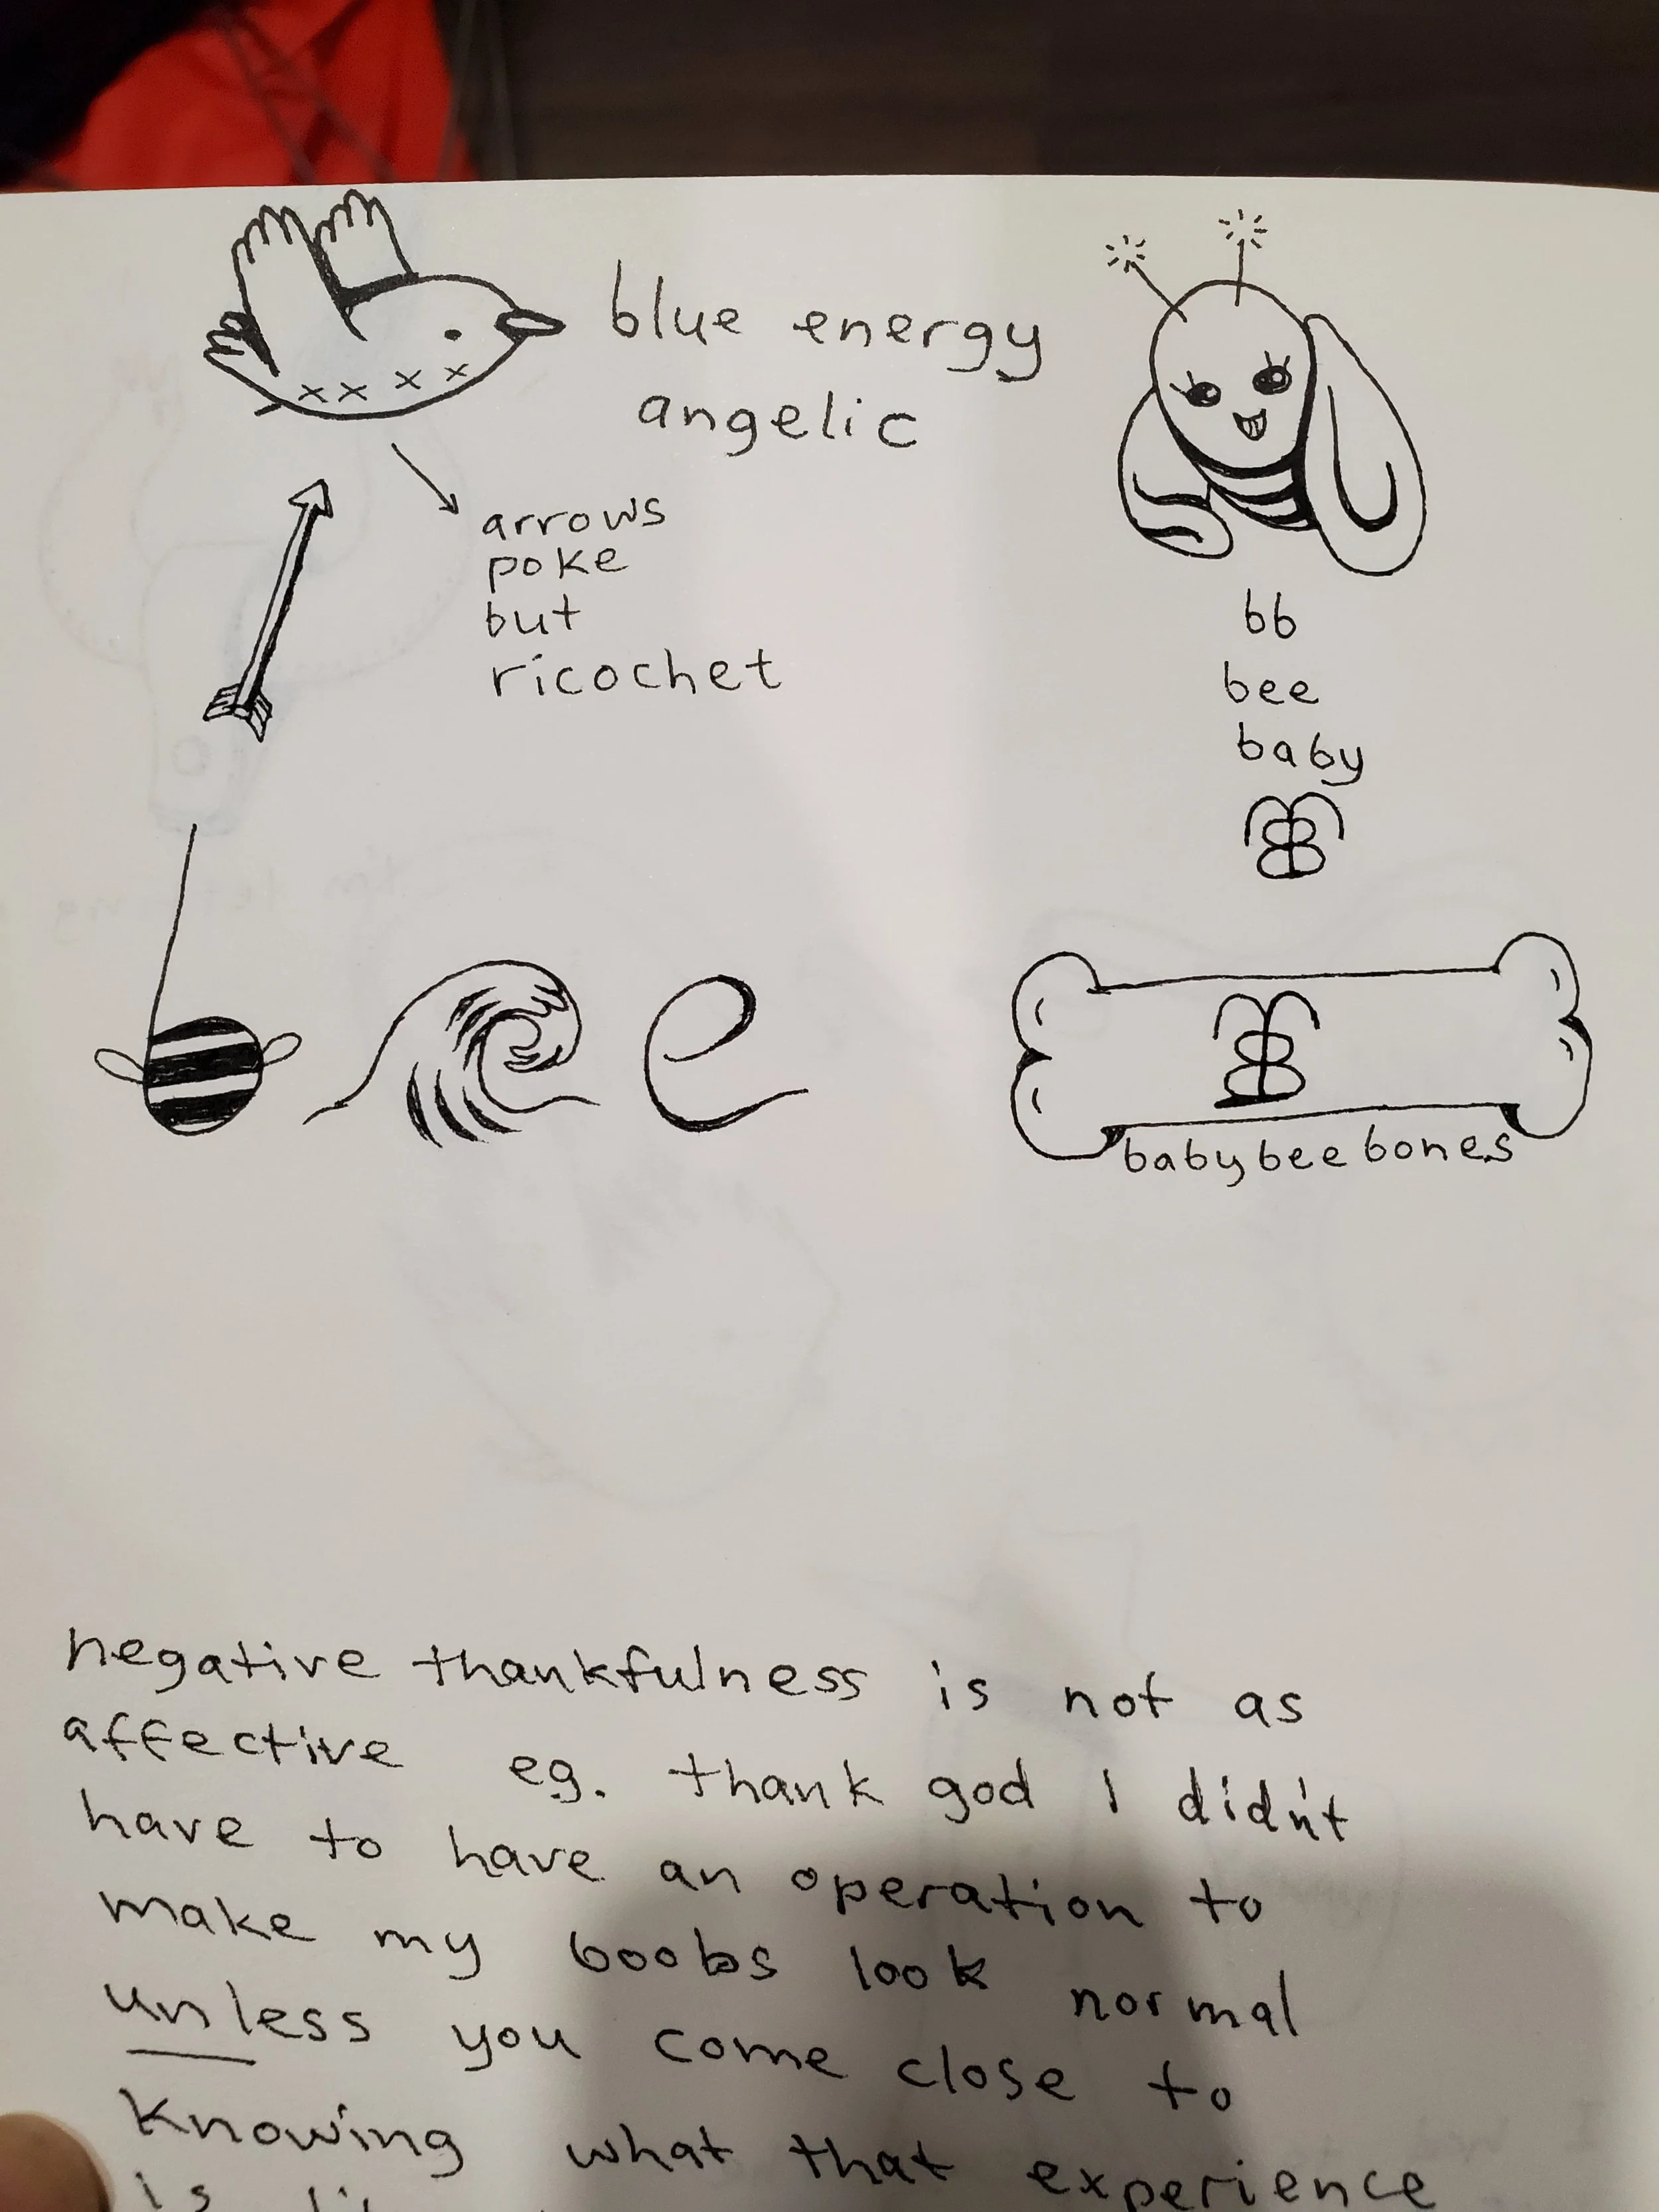 blue energy
angelic
arrows
poke
but
ricochet
bb
bee
baby
baby bee bones
negative thankfulness is not as
affective eg. thank god I didn't
have to have an operation to
make my boobs look normal
unless you come close to
knowing what that experience
is